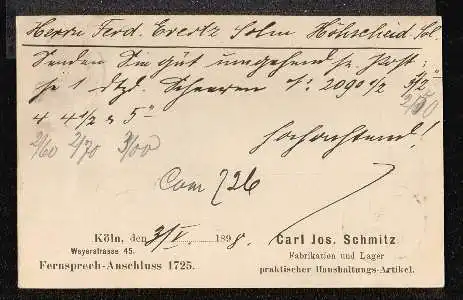 Herrn Ferd. Evertz Sohn Höhscheid Sol.
Senden Sie gut umgehend p. Post:
je 1 Dtzd. Scheeren N: 2090 1/2 5 1/2"
4 4 1/2 & 5"
2/60 2/70 3/00
hochachtend!
Com 726
Köln, den 3/V. 1898.
Weyerstrasse 45.
Fernsprech-Anschluss 1725.
Carl Jos. Schmitz
Fabrikation und Lager
praktischer Haushaltungs-Artikel.